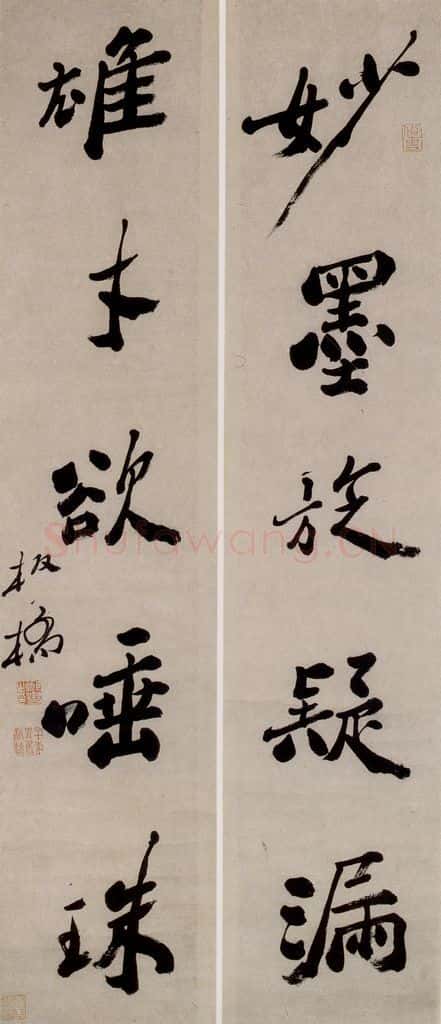 妙墨旋疑漏
雄才欲唾珠
板橋
Shufawang.CN